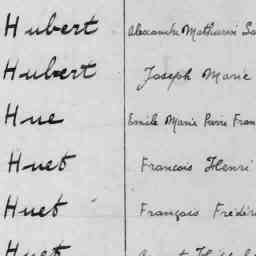 Hubert Alexandre Mathurin
Hubert Joseph Marie
Hue Emile Marie Pierre Fran
Huet Francois Henri
Huet François Frédéri
Huet